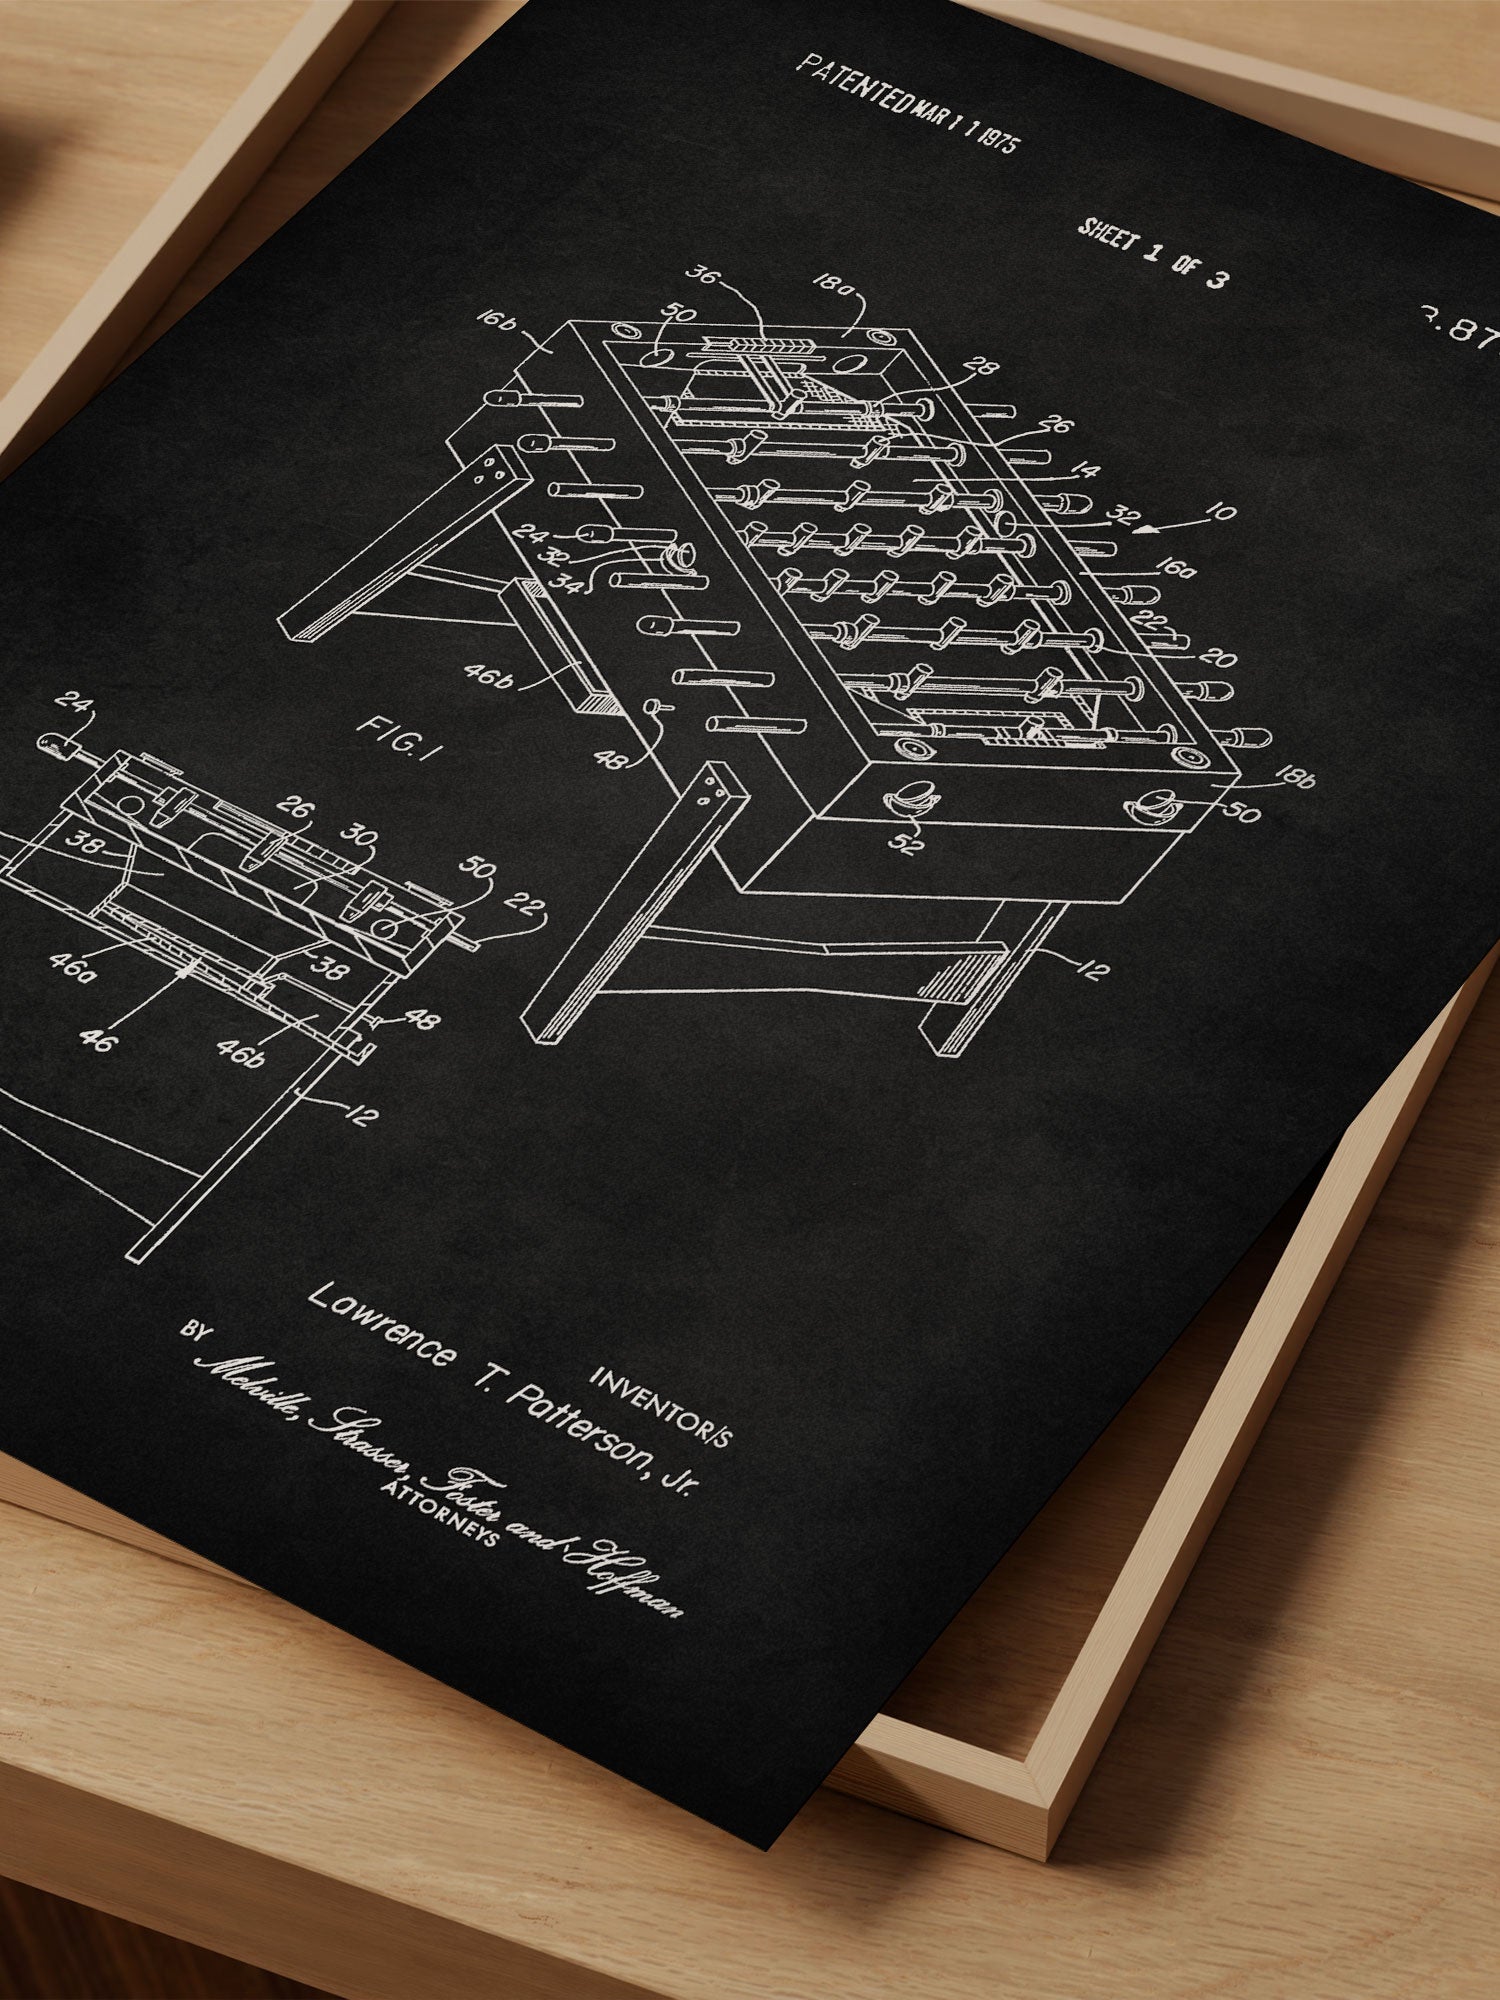 PATENTED MAR 11 1975
SHEET 1 OF 3
3.87
36
18a
50
16b
28
26
14
32
10
24
32
34
16a
22
20
46b
48
18b
50
52
12
FIG. 1
24
26
30
38
50
22
46a
38
46
46b
48
12
INVENTOR/S
Lawrence T. Patterson, Jr.
BY
Melville, Strasser, Foster and Hoffman
ATTORNEYS